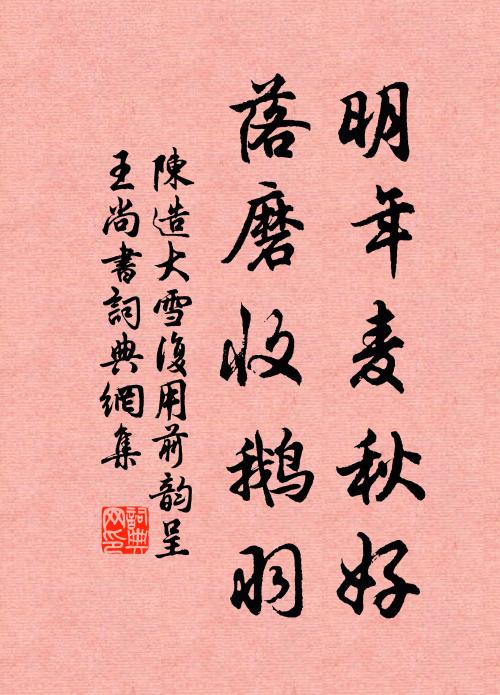 明年麦秋好
落磨收鹅羽
陳造大雪復用前韵呈
王尚書詞典網集
詞典网印